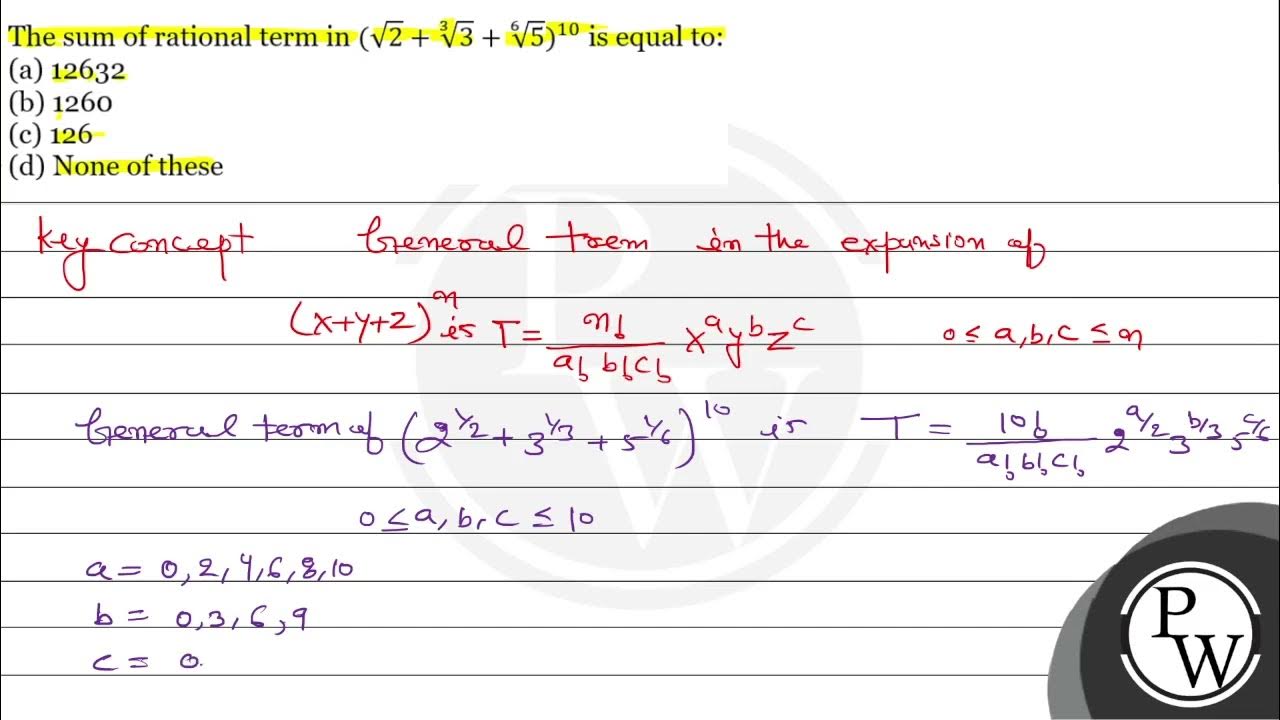 The sum of rational term in (√2 + ∛3 + ⁶√5)¹⁰ is equal to:
(a) 12632
(b) 1260
(c) 126
(d) None of these
Key concept General term in the expansion of
(x+y+z)ⁿ is T = n!/(a! b! c!) xᵃ yᵇ zᶜ 0 ≤ a, b, c ≤ n
General term of (2^(1/2) + 3^(1/3) + 5^(1/6))^10 is T = 10!/(a! b! c!) 2^(a/2) 3^(b/3) 5^(c/6)
0 ≤ a, b, c ≤ 10
a = 0, 2, 4, 6, 8, 10
b = 0, 3, 6, 9
c = 0.
P
W